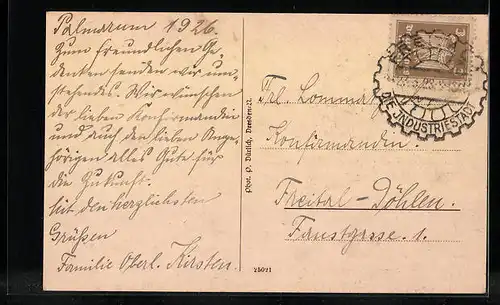 Palmarum 1926.
Zum freundlichen Ge-
denken senden wir um-
stehendes. Wir wünschen
der lieben Konfirmandin
und auch den lieben Ange-
hörigen alles Gute für
die Zukunft.
Mit den herzlichsten
Grüßen
Familie Oberl. Kirsten.
Phot. P. Dürlich, Dresden-Zt.
3
DIE INDUSTRIESTADT
Frl. Lommatzsch
Konfirmandin.
Freital-Döhlen.
Faustgasse. 1.
25021